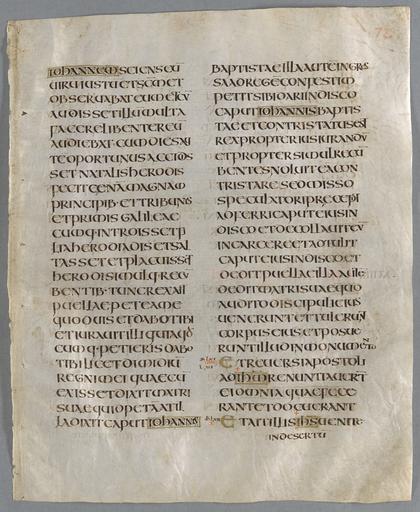 IOHANNEM SCIENS EŪ
UIRUM IUSTŪ ET SCM ET
OBSERUABAT EUM ET EŪ
AUDISSET ILLŪ MULTA
FACERE LIBENTER EŪ
AUDIEBAT CUM DIES AU
TE OPORTUNUS ACCIDIS
SET NATALIS HERODIS
FECIT CENA MAGNAM
PRINCIPIB· ET TRIBUNIS
ET PRIMIS GALILEAE
CUMQ· INTROISSET FI
LIA HERODIADIS ET SAL
TASSET ET PLACUISSET
HERODI SIMULQ· RECŪ
BENTIB· TUNC REX AIT
PUELLAE PETE A ME
QUOD UIS ET DABO TIBI
ET IURAUIT ILLI QUIA QD
CUMQ· PETIERIS DABO
TIBI LICET DIMIDIŪ
REGNI MEI QUAE CŪ
EXISSET DIXIT MATRI
SUAE QUID PETĀ AT IL
LA DIXIT CAPUT IOHANNIS
BAPTISTAE ILLA AUTĒ INGRES
SA AD REGĒ CONFESTIM
PETIIT SIBI DARI IN DISCO
CAPUT IOHANNIS BAPTIS
TAE ET CONTRISTATUS EST
REX PROPTER IUSIURANDŪ
ET PROPTER SIMUL RECŪ
BENTES NOLUIT EĀ CON
TRISTARE SED MISSO
SPECULATORI PRECEPI
ADFERRI CAPUT EIUS IN
DISCO ET DECOLLAUIT EŪ
IN CARCERE ET ATTULIT
CAPUT EIUS IN DISCO ET
DEDIT PUELLAE ILLA AUTĒ
DEDIT MATRI SUAE QUO
AUDITO DISCIPULI EIUS
UENERUNT ET TULERUN
CORPUS EIUS ET POSUE
RUNT ILLUD IN MONUMENTO
ET REUERSI APOSTOLI
AD IHM RENUNTIAUERT
EI OMNIA QUAE FECE
RANT ET DOCUERANT
ET AIT ILLIS IHS UENITE
IN DESERTŪ